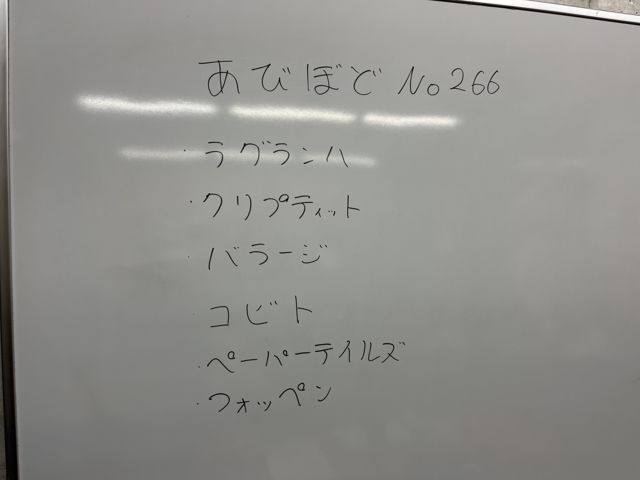 あびぼど No266
・ラグランハ
・クリプティット
・バラージ
コビト
・ペーパーテイルズ
・フォッペン